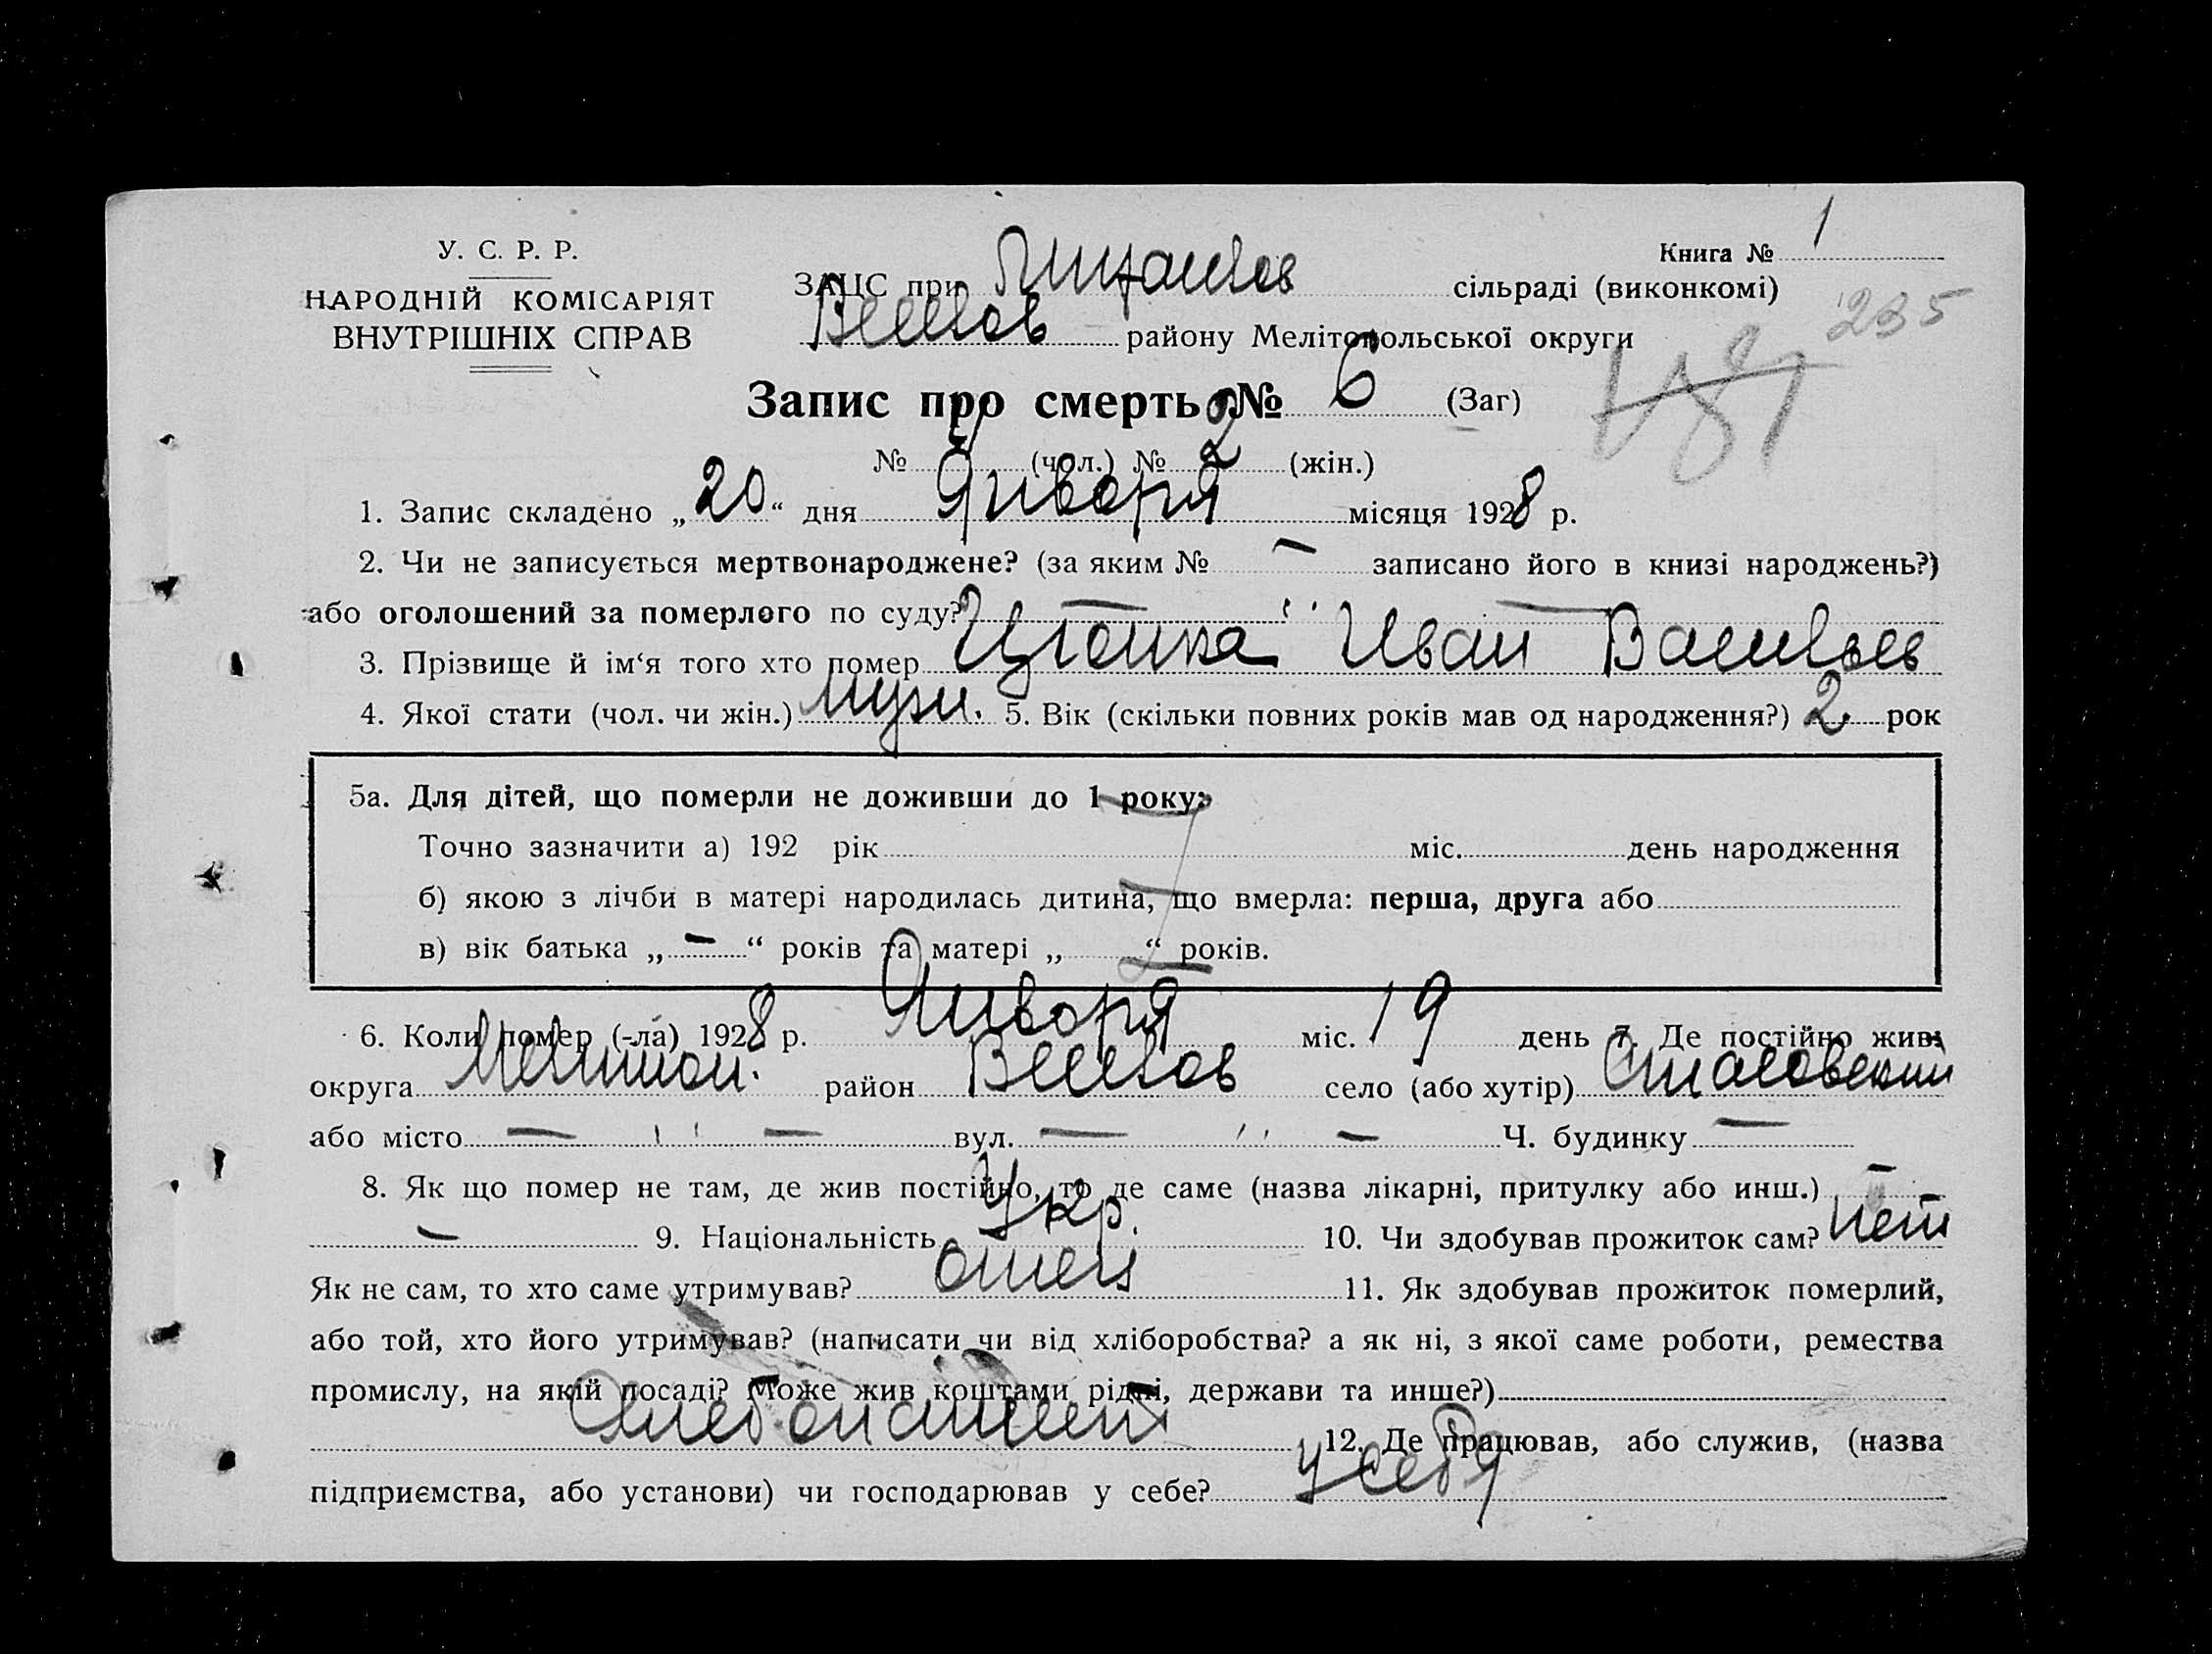 У. С. Р. Р.
НАРОДНІЙ КОМІСАРІЯТ
ВНУТРІШНІХ СПРАВ
Книга № 1
ЗАЦС при сільраді (виконкомі)
235
району Мелітопольської округи
Запис про смерть № 6 (Заг)
№ 4 (чол.) № 2 (жін.)
1. Запис складено „20“ дня Января місяця 1928 р.
2. Чи не записується мертвонароджене? (за яким № — записано його в книзі народжень?)
або оголошений за померлого по суду? —
3. Прізвище й ім‘я того хто помер Иван Васильев
4. Якої стати (чол. чи жін.) муж. 5. Вік (скільки повних років мав од народження?) 2 рок
5а. Для дітей, що померли не доживши до 1 року:
Точно зазначити а) 192 рік міс. день народження
б) якою з лічби в матері народилась дитина, що вмерла: перша, друга або
в) вік батька „—“ років та матері „ “ років.
6. Коли помер (-ла) 1928 р. Января міс. 19 день 7. Де постійно жив:
округа Мелитоп. район село (або хутір)
або місто — " — вул. — " — Ч. будинку —
8. Як що помер не там, де жив постійно, то де саме (назва лікарні, притулку або инш.) —
— 9. Національність Укр. 10. Чи здобував прожиток сам? Нет
Як не сам, то хто саме утримував? отец 11. Як здобував прожиток померлий,
або той, хто його утримував? (написати чи від хліборобства? а як ні, з якої саме роботи, ремества
промислу, на якій посаді? Може жив коштами рідні, держави та инше?)
Хлебопашест 12. Де працював, або служив, (назва
підприємства, або установи) чи господарював у себе? у себя